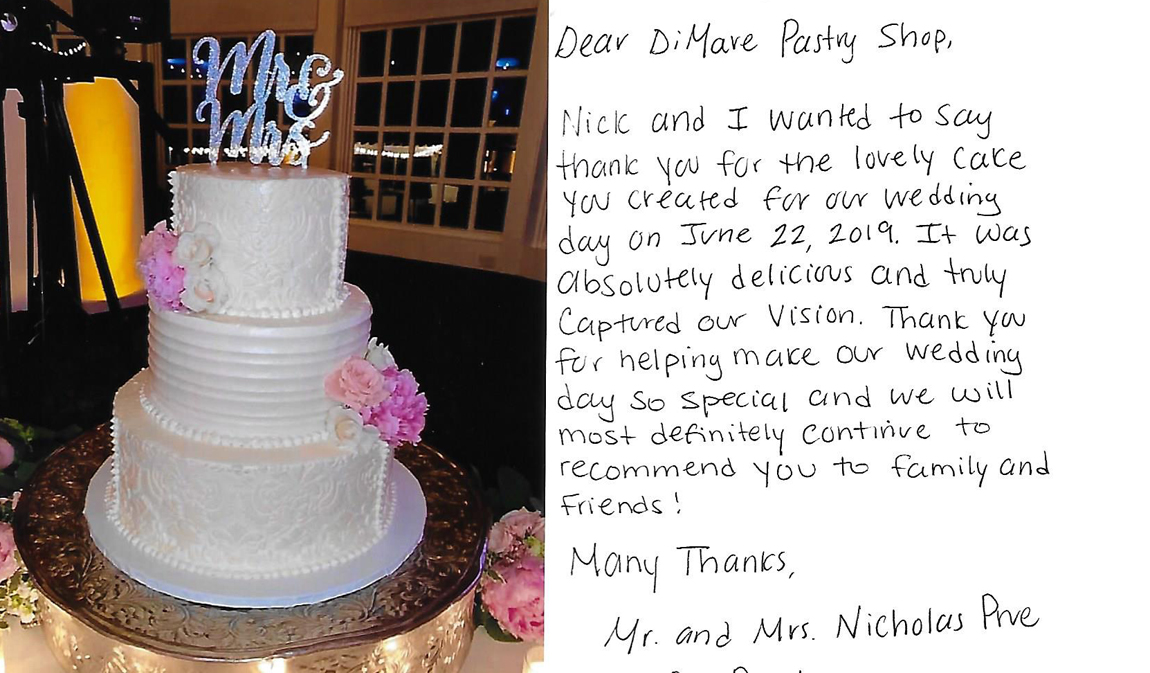 Mr &
Mrs
Dear DiMare Pastry Shop,
Nick and I wanted to say
thank you for the lovely cake
you created for our wedding
day on June 22, 2019. It was
absolutely delicious and truly
captured our vision. Thank you
for helping make our wedding
day so special and we will
most definitely continue to
recommend you to family and
friends!
Many Thanks,
Mr. and Mrs. Nicholas